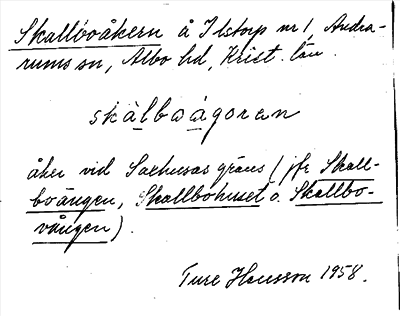 Skallboåkern å Ilstorp nr 1, Andra-
rums sn, Albo hd, Krist. län
skàlbɷàgoran
åker vid Saxhusas gräns (jfr Skall-
boängen, Skallbohuset o. Skallbo-
vången).
Ture Hansson 1958.